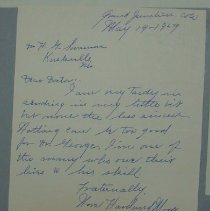 Grand Junction, Colo
May 19-1929
Dr H. G. Swanson
Kirksville
Mo.
Dear Doctor,
I am very tardy in
sending in my little bit
but none the less sincere
Nothing can be too good
for Dr George. I'm one of
the many who owe their
lives to his skill
Fraternally,